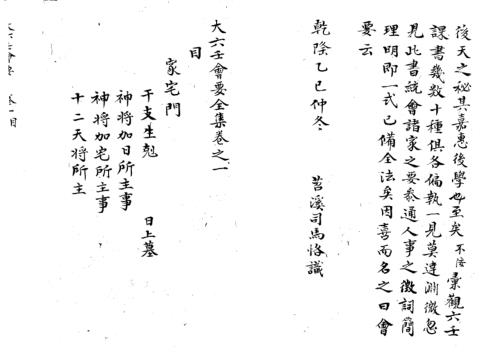 後天之秘其嘉惠後學也至矣不佞彙觀六壬
課書幾數十種俱各偏執一見莫達淵微忽
見此書統會諸家之要泰通人事之徵詞簡
理明即一式已備全法矣因喜而名之曰會
要云
乾隆乙巳仲冬 苕溪司馬恪識
大六壬會要全集卷之一
目
家宅門
干支生剋 日上墓
神將加日所主事
神將加宅所主事
十二天將所主